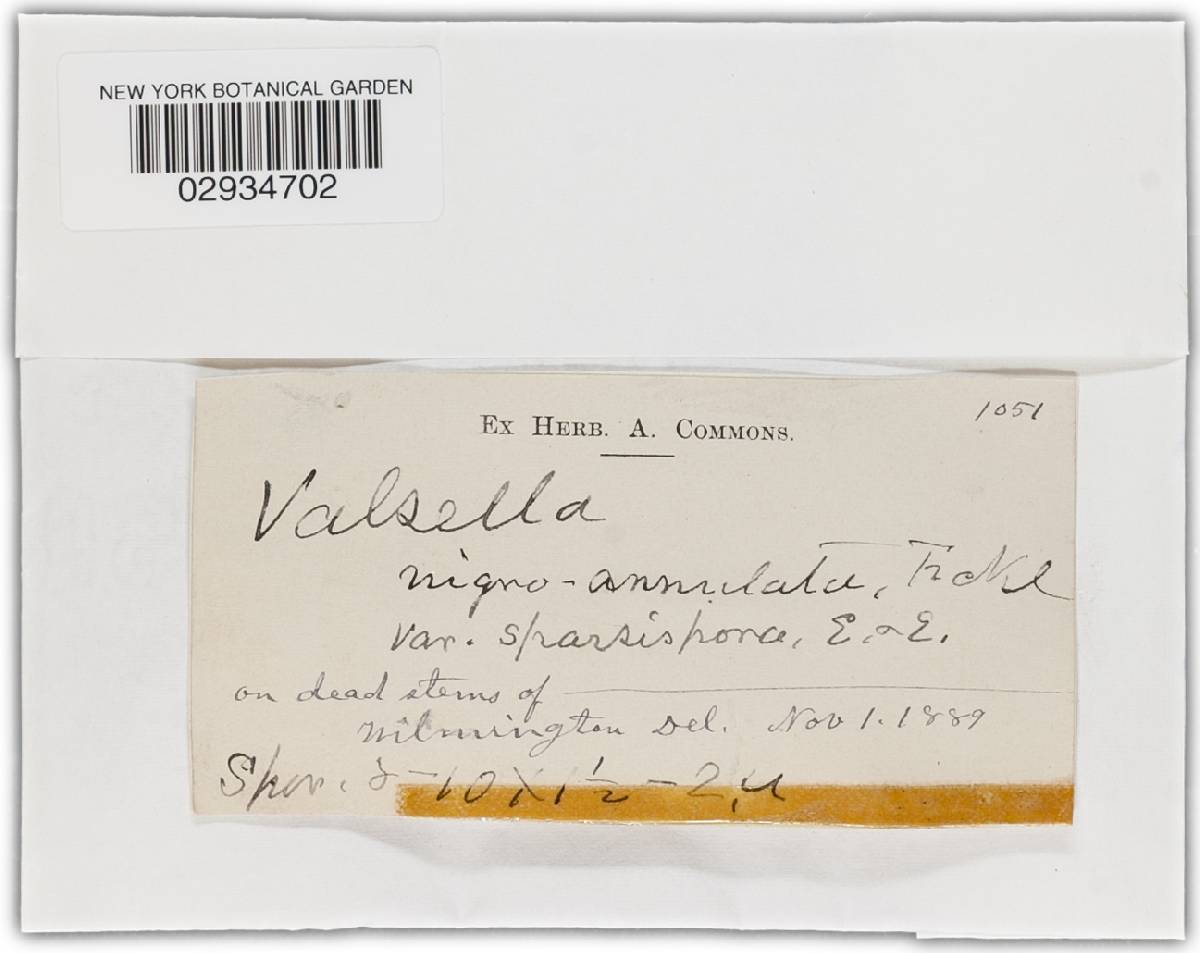 NEW YORK BOTANICAL GARDEN
02934702
1051
EX HERB. A. COMMONS.
Valsella
nigro-annulata, Fckl
var. sparsispora, E. & E.
on dead stems of
Wilmington Del. Nov 1. 1889
Spor. 8-10 X 1½-2 µ